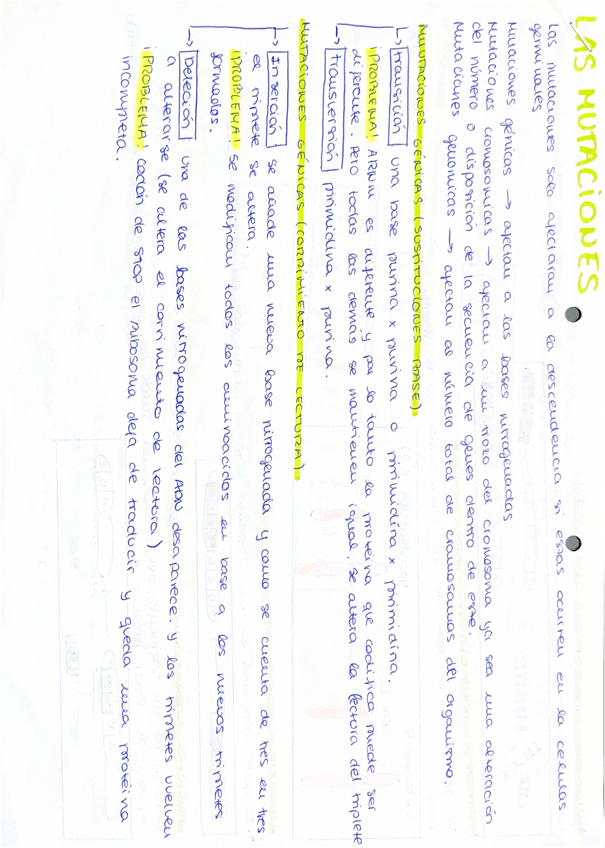 LAS MUTACIONES
Las mutaciones solo afectaran a la descendencia si estas ocurren en la celulas
germinales
Mutaciones génicas → afectan a las bases nitrogenadas
Mutaciones cromosomicas → afectan a un trozo del cromosoma ya sea una alteración
del número o disposición de la secuencia de genes dentro de este.
Mutaciones genomicas → afectan al número total de cromosomas del organismo.
MUTACIONES GÉNICAS (SUSTITUCIONES BASE)
→ transición una base purina x purina o pirimidina x pirimidina.
¡PROBLEMA! ARNm es diferente y por lo tanto la proteina que codifica puede ser
diferente. Pero todas las demás se mantienen igual, se altera la lectura del triplete
→ transversión pirimidina x purina.
MUTACIONES GÉNICAS (CORRIMIENTO DE LECTURA)
→ Inserción se añade una nueva base nitrogenada y como se cuenta de tres en tres
el triplete se altera.
¡PROBLEMA! se modifican todos los aminoacidos en base a los nuevos tripletes
formados.
→ Delección una de las bases nitrogenadas del ADN desaparece. y los tripletes vuelven
a alterarse (se altera el corrimiento de lectura)
¡PROBLEMA! Codón de STOP el ribosoma deja de traducir y queda una proteina
incompleta.